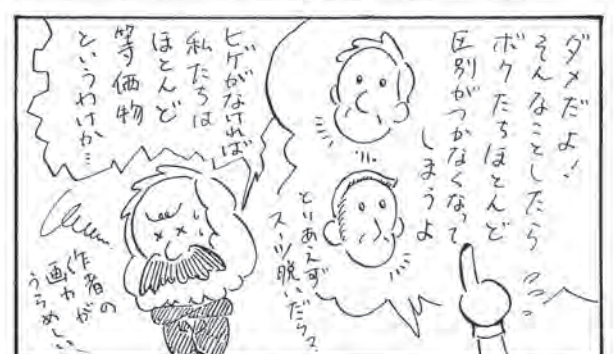 ダメだよ!
そんなことしたら
ボクたちほとんど
区別がつかなくなって
しまうよ
とりあえず
スーツ脱いだら?
ヒゲがなければ
私たちは
ほとんど
等価物
というわけか…
作者の
画力が
うらめしい